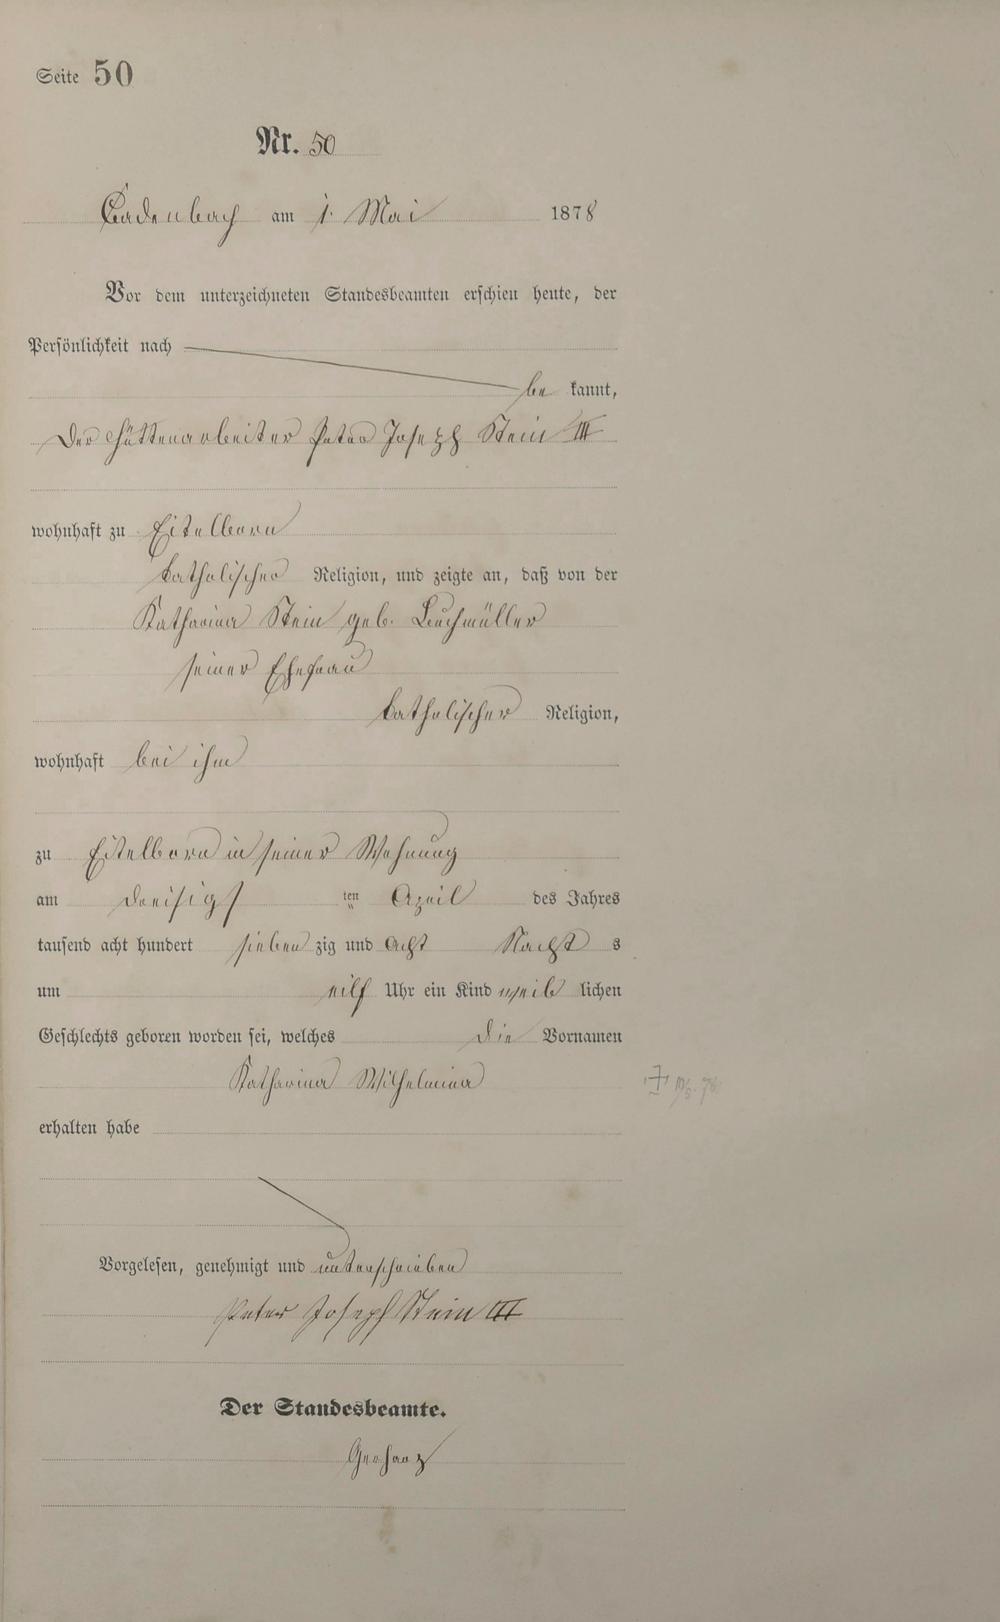 Seite 50
Nr. 50
Cadenbach am 1. Mai 1878
Vor dem unterzeichneten Standesbeamten erschien heute, der
Persönlichkeit nach
be kannt,
Der Hüttenarbeiter Peter Joseph Stein III
wohnhaft zu Eitelborn
katholischer Religion, und zeigte an, daß von der
Katharina Stein geb. Buchmüller
seiner Ehefrau
katholischer Religion,
wohnhaft bei ihm
zu Eitelborn in seiner Wohnung
am dreisigs ten April des Jahres
tausend acht hundert sieben zig und acht Nacht s
um eilf Uhr ein Kind weib lichen
Geschlechts geboren worden sei, welches die Vornamen
Katharina Wilhelmina
erhalten habe
Vorgelesen, genehmigt und unterschrieben
Peter Joseph Stein III
Der Standesbeamte.
Gerharz